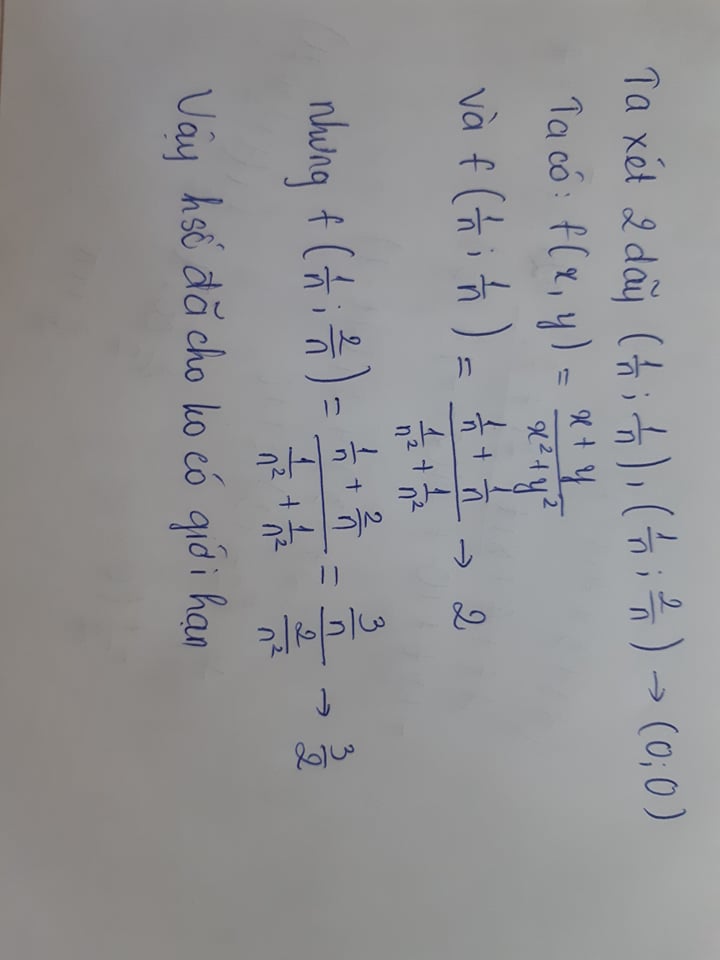 Ta xét 2 dãy (1/n ; 1/n), (1/n ; 2/n) → (0;0)
Ta có: f(x, y) = (x + y)/(x² + y²)
và f(1/n ; 1/n) = (1/n + 1/n)/(1/n² + 1/n²) → 2
nhưng f(1/n ; 2/n) = (1/n + 2/n)/(1/n² + 1/n²) = (3/n)/(2/n²) → 3/2
Vậy hsố đã cho ko có giới hạn